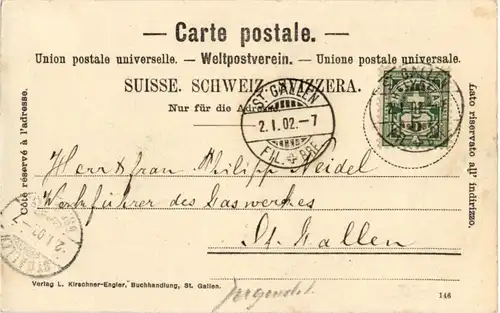 — Carte postale. —
Union postale universelle. — Weltpostverein. — Unione postale universale.
SUISSE. SCHWEIZ. SVIZZERA.
Nur für die Adresse.
Côté réservé à l'adresse.
Lato riservato all' indirizzo.
ST. GALLEN
2.I.02.-7
FIL. BRF.
5
Herr & frau Philipp Neidel
Werkführer des Gaswerkes
St. Gallen
ST. GALLEN
2.I.02.-7
Verlag L. Kirschner-Engler, Buchhandlung, St. Gallen.
146